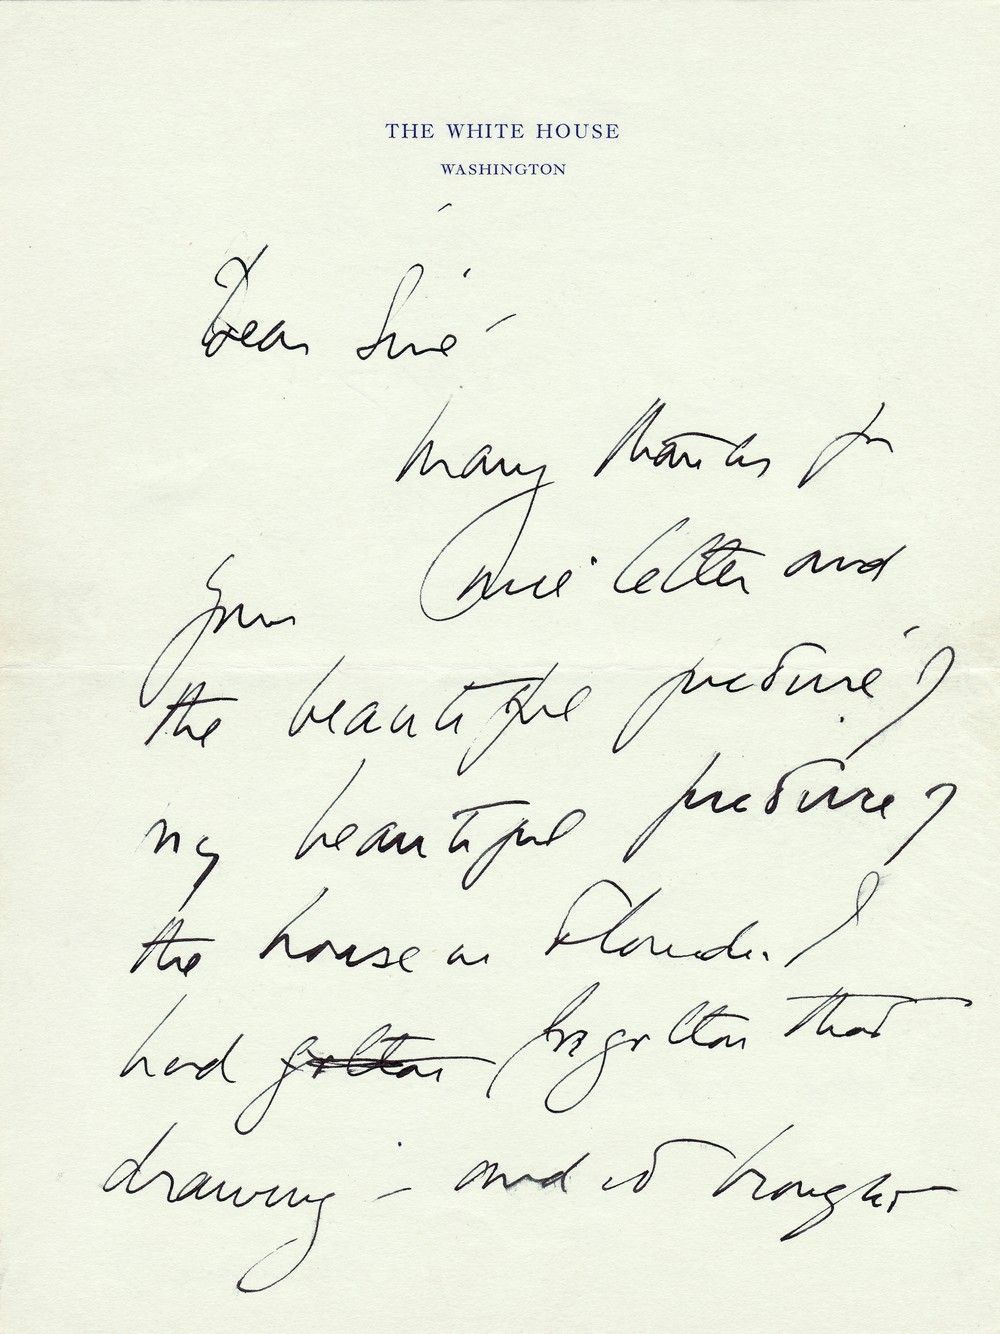 THE WHITE HOUSE
WASHINGTON
Dear
Many thanks for
your nice letter and
the beautiful picture of
my beautiful picture of
the house in Florida. I
had gotten forgotten that
drawing - and it brought